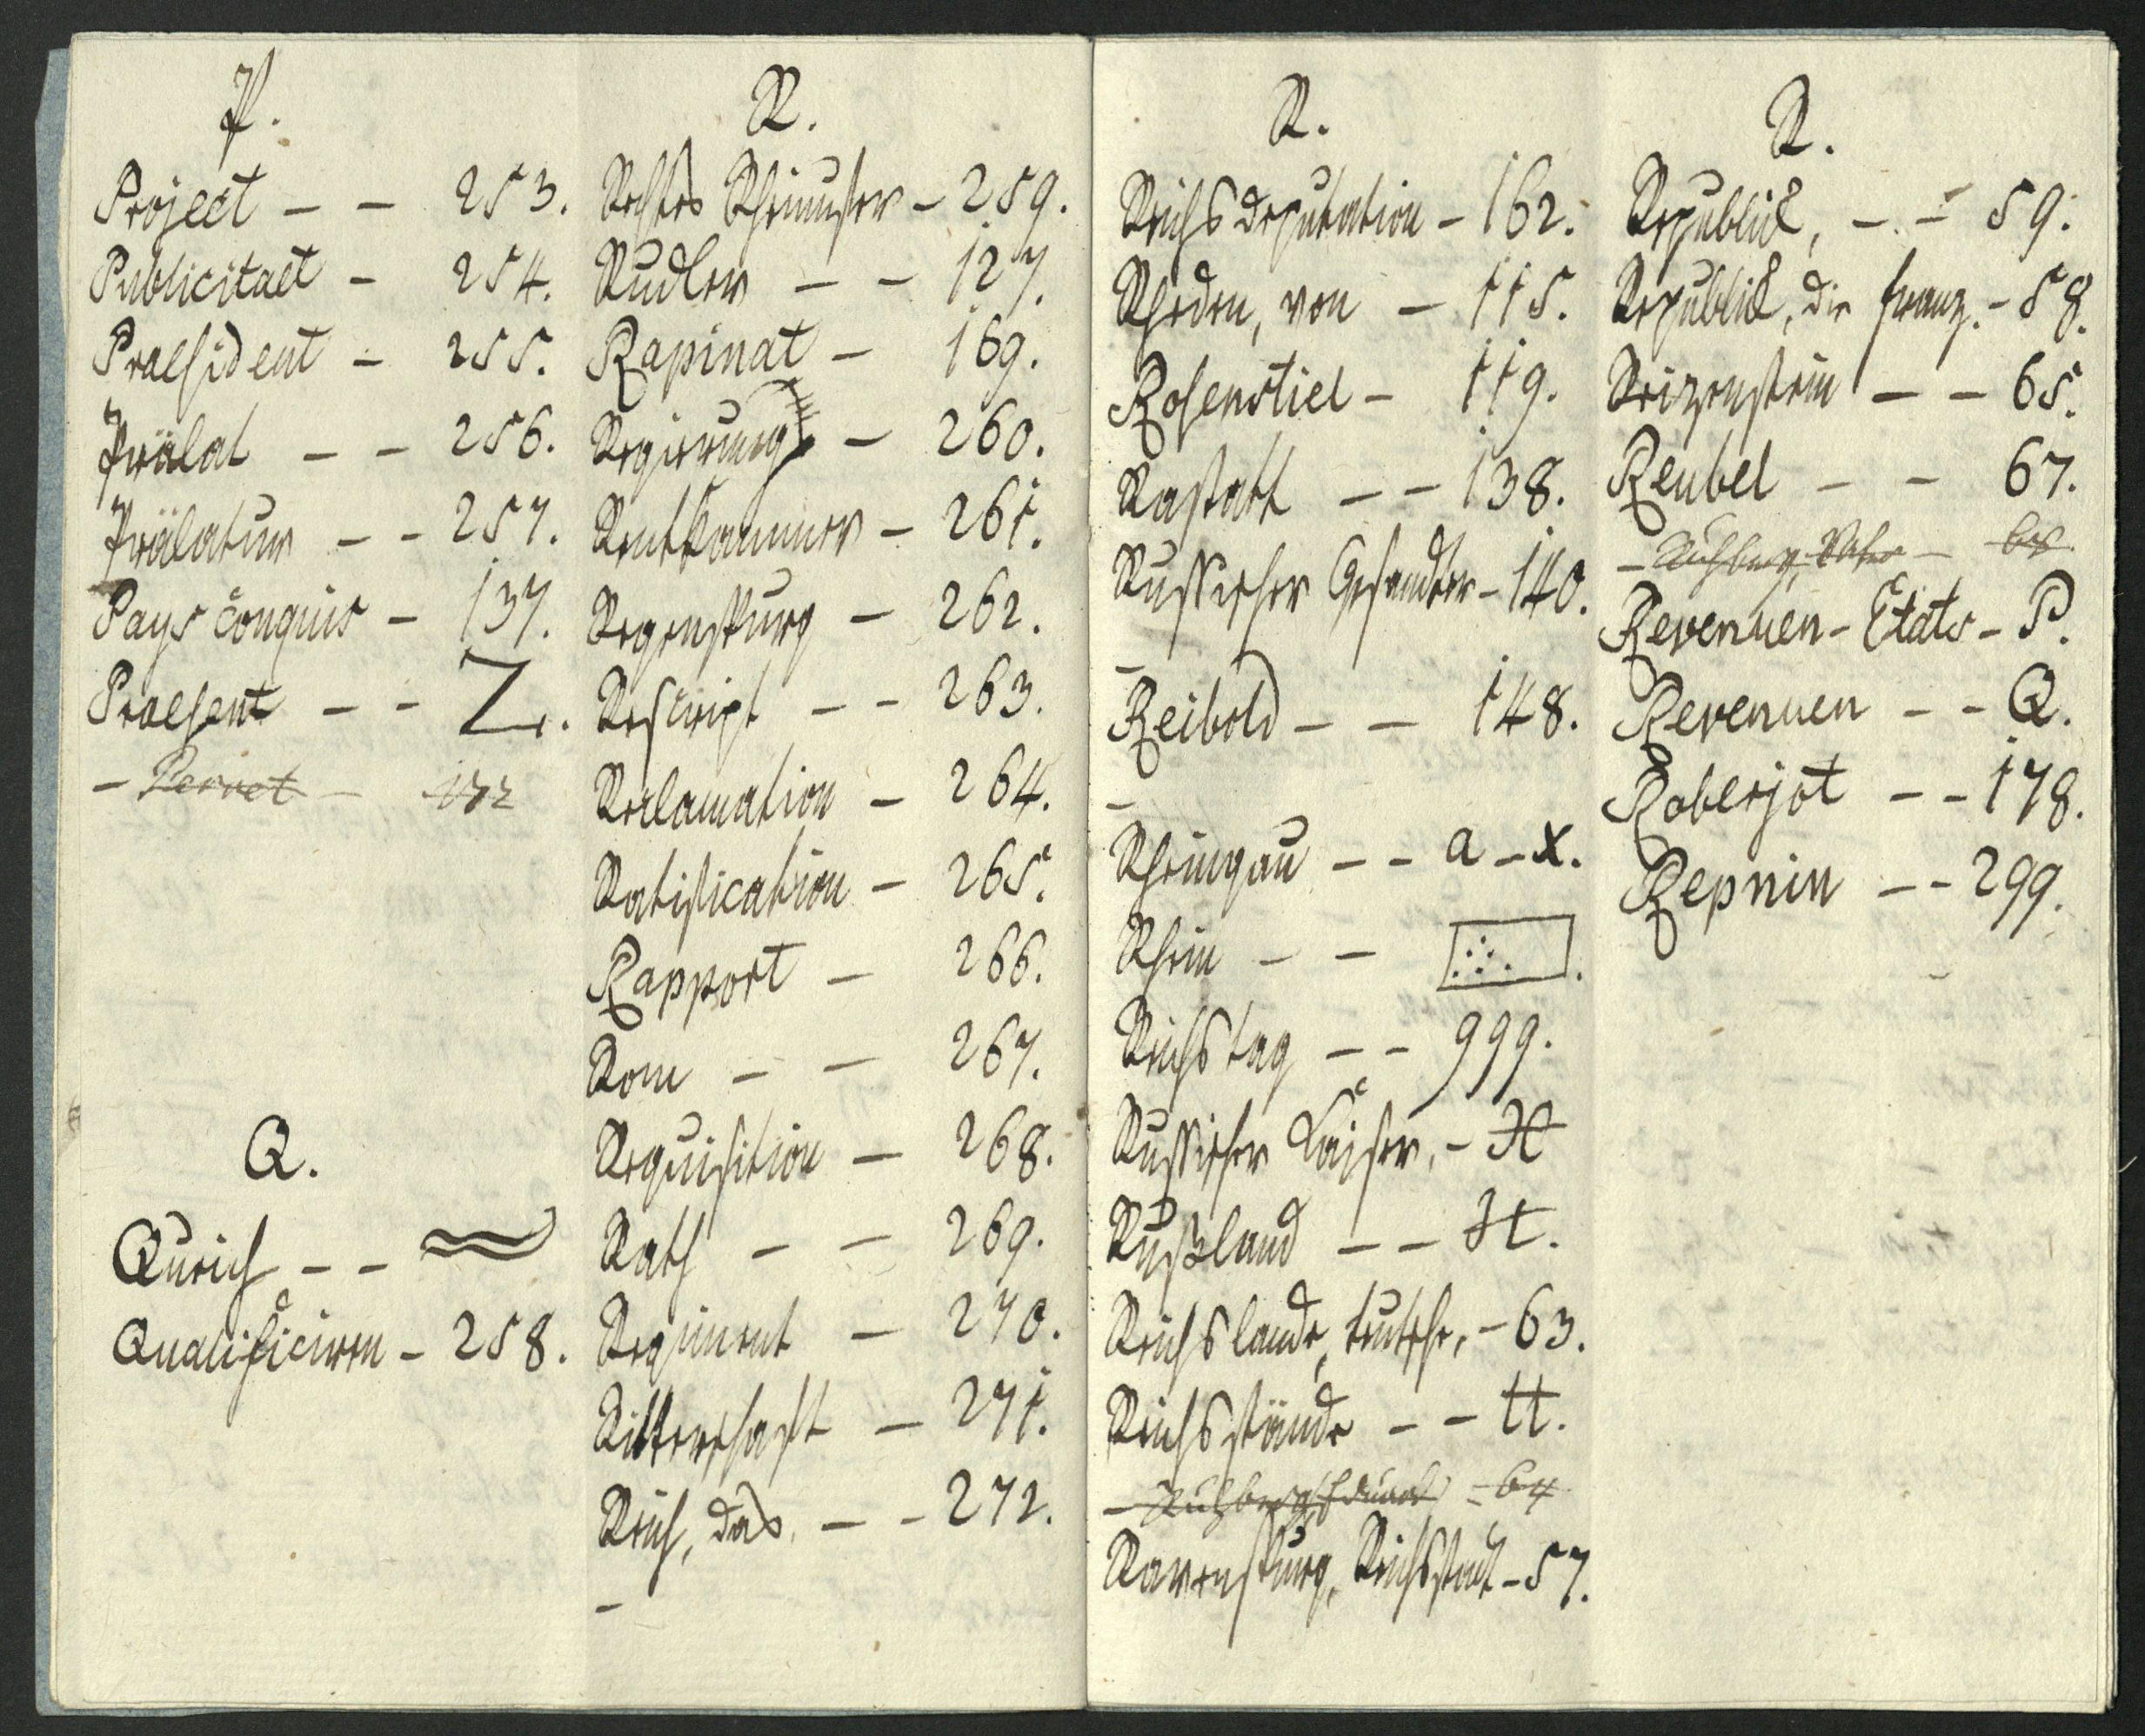 P.
Project – – 253.
Publicitaet – 254.
Praesident – 255.
Prälat – – 256.
Prälatur – – 257.
Pays conquis – 137.
Praesent – – Z.
– Pervet – 172
Q.
Qurich – –
Qualificiren – 258.
R.
Rechtes Rheinufer – 259.
Rudler – – 127.
Rapinat – 169.
Regierung – 260.
Rentkammer – 261.
Regenspurg – 262.
Rescript – – 263.
Reclamation – 264.
Ratification – 265.
Rapport – 266.
Rom – – 267.
Requisition – 268.
Rath – – 269.
Regiment – 270.
Ritterschaft – 271.
Reich, das, – – 272.
–
R.
Reichsdeputation – 162.
Rheden, von – 115.
Rosenstiel – 119.
Rastatt – – 138.
Russischer Gesandter – 140.
–
Reibold – – 148.
–
Rheingau – – a – x.
Rhein – –
Reichstag – – 999.
Russischer Kaiser, –
Rußland – –
Reichslande, teutsche, – 63.
Reichsstände – – tt.
– 64
Ravenspurg, Reichsstadt – 57.
R.
Republik, – – 59.
Republik, die franz. – 58.
Reizenstein – – 65.
Reubel – – 67.
Revenuen-Etats – P.
Revenuen – – Q.
Roberjot – – 178.
Repnin – – 299.